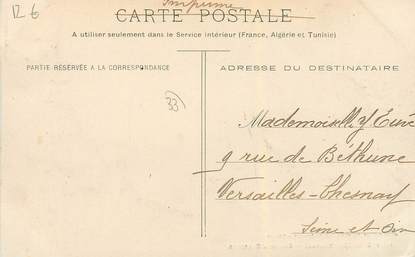 R 6
Imprimé
CARTE POSTALE
A utiliser seulement dans le Service intérieur (France, Algérie et Tunisie)
PARTIE RÉSERVÉE A LA CORRESPONDANCE
ADRESSE DU DESTINATAIRE
33
Mademoiselle Y
9 rue de Béthune
Versailles-Chesnay
Seine et Oise